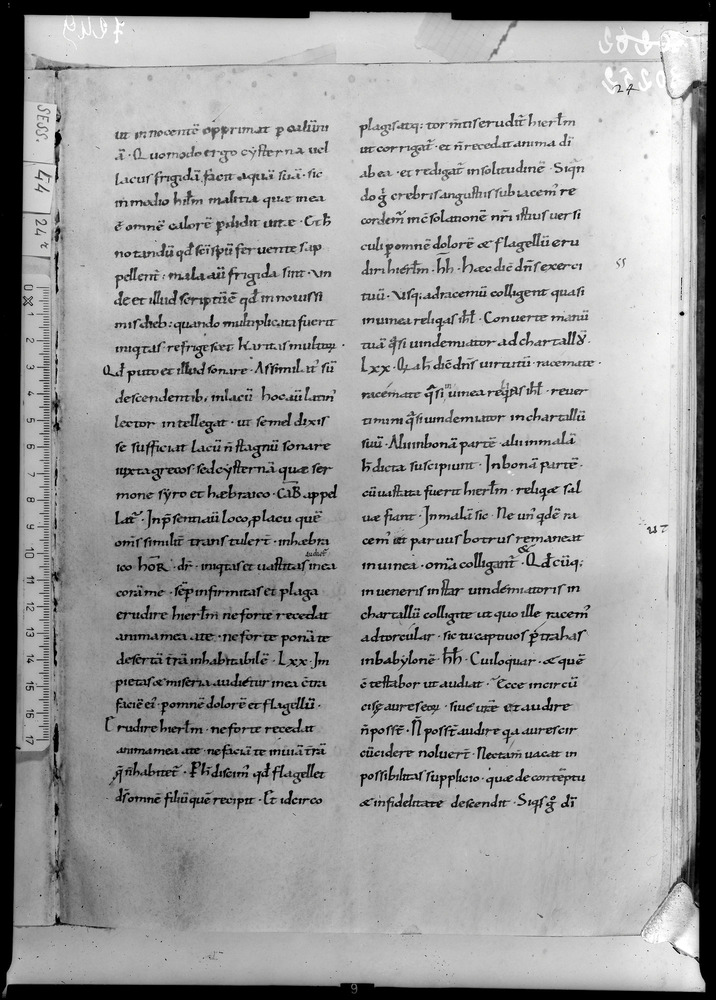 24
SESS. 44 24r
ut innocentē opprimat p calūnı
ā · Quomodo ergo cysterna vel
lacus frigidā facit aquā suā · sic
inmodio hłm malitia quæ mea
ē omnē calorē pdidit vitæ · Et h̄
notandū qđ sc̄i sp̄u fervente sup
pellent; mala aū frigida sint · Vn
de et illud scriptū ē qđ innovissi
mis dieb; quando multiplicata fuerit
iniqtas · refrigescet karitas multor ·
Qđ puto et illud sonare · Assimilat sū
descendentib; inlacū hoc aū latin
lector intellegat · ut semel dixis
se sufficiat lacū n̄ stagnū sonare
iuxta grecos · sed cysternā quæ ser
mone syro et hæbraico · GAB appel
lat · In p̄senti aū loco, p lacu quē
om̄s similit transtulert · inhæbra
audiet
ico hOR · dr̄ · iniqtas et vastitas in ea
corā me · sēp infirmitas et plaga
erudire hierłm ne forte recedat
anima mea a te · ne forte ponā te
desertā trā inhabitabilē · Lxx · Im
pietas & miseria audietur in ea c̄tra
faciē ei · p omnē dolorē et flagellū ·
Erudire hierłm · ne forte recedat
anima mea a te · ne faciā te inviā trā
q̄ n̄ habitet · P h̄ discim qđ flagellet
dс̄ omnē filiū quē recipit · Et idcirco
plagis atq; tormtis erudit hierłm
ut corrigat · et n̄ recedat anima dī
ab ea · et redigat in solitudinē · Siqn
do g crebris angustiis subiacem re
cordem in c̄solatione nr̄i istius versi
culi p omnē dolorē & flagellū eru
diri hierłm · hh̄ · Hæc dic̄ dn̄s exerci
tuū · Usq; ad racemū colligent quasi
in vinea reliqas isł · Converte manū
tuā q̄si vindemiator ad chartallū
Lxx · Q̄a h̄ dic̄ dn̄s virtutū racemate ·
racemate q̄si in vinea reliqas isł · rever
timini q̄si vindemiator in chartallū
suū · Alii in bonā partē · alii in malā
h̄ dicta suscipiunt · In bonā partē ·
cū vastata fuerit hierłm · reliqæ sal
væ fiant · In malā sic · Ne un qdē ra
cem et parvus botrus remaneat
in vinea · om̄ia colligant · Qđcūq;
inveneris instar vindemiatoris in
chartallū colligite ut quo ille racem
ad torcular · sic tu captivos p̄trahas
in babylonē · hh̄ · Cui loquar · & quē
c̄testabor ut audiat · Ecce incircū
cise aures eor · sive vr̄æ et audire
n̄ posst · N̄ posst audire qa aures cir
cūcidere noluert · Nec tam vacat in
possibilitas supplicio · quæ de contēptu
& infidelitate descendit · Siqs g dī